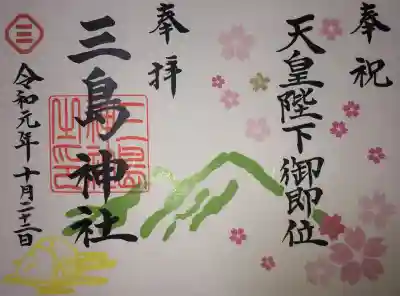 奉祝
天皇陛下御即位
奉拝
三島神社
令和元年十月二十二日
三島神社之印